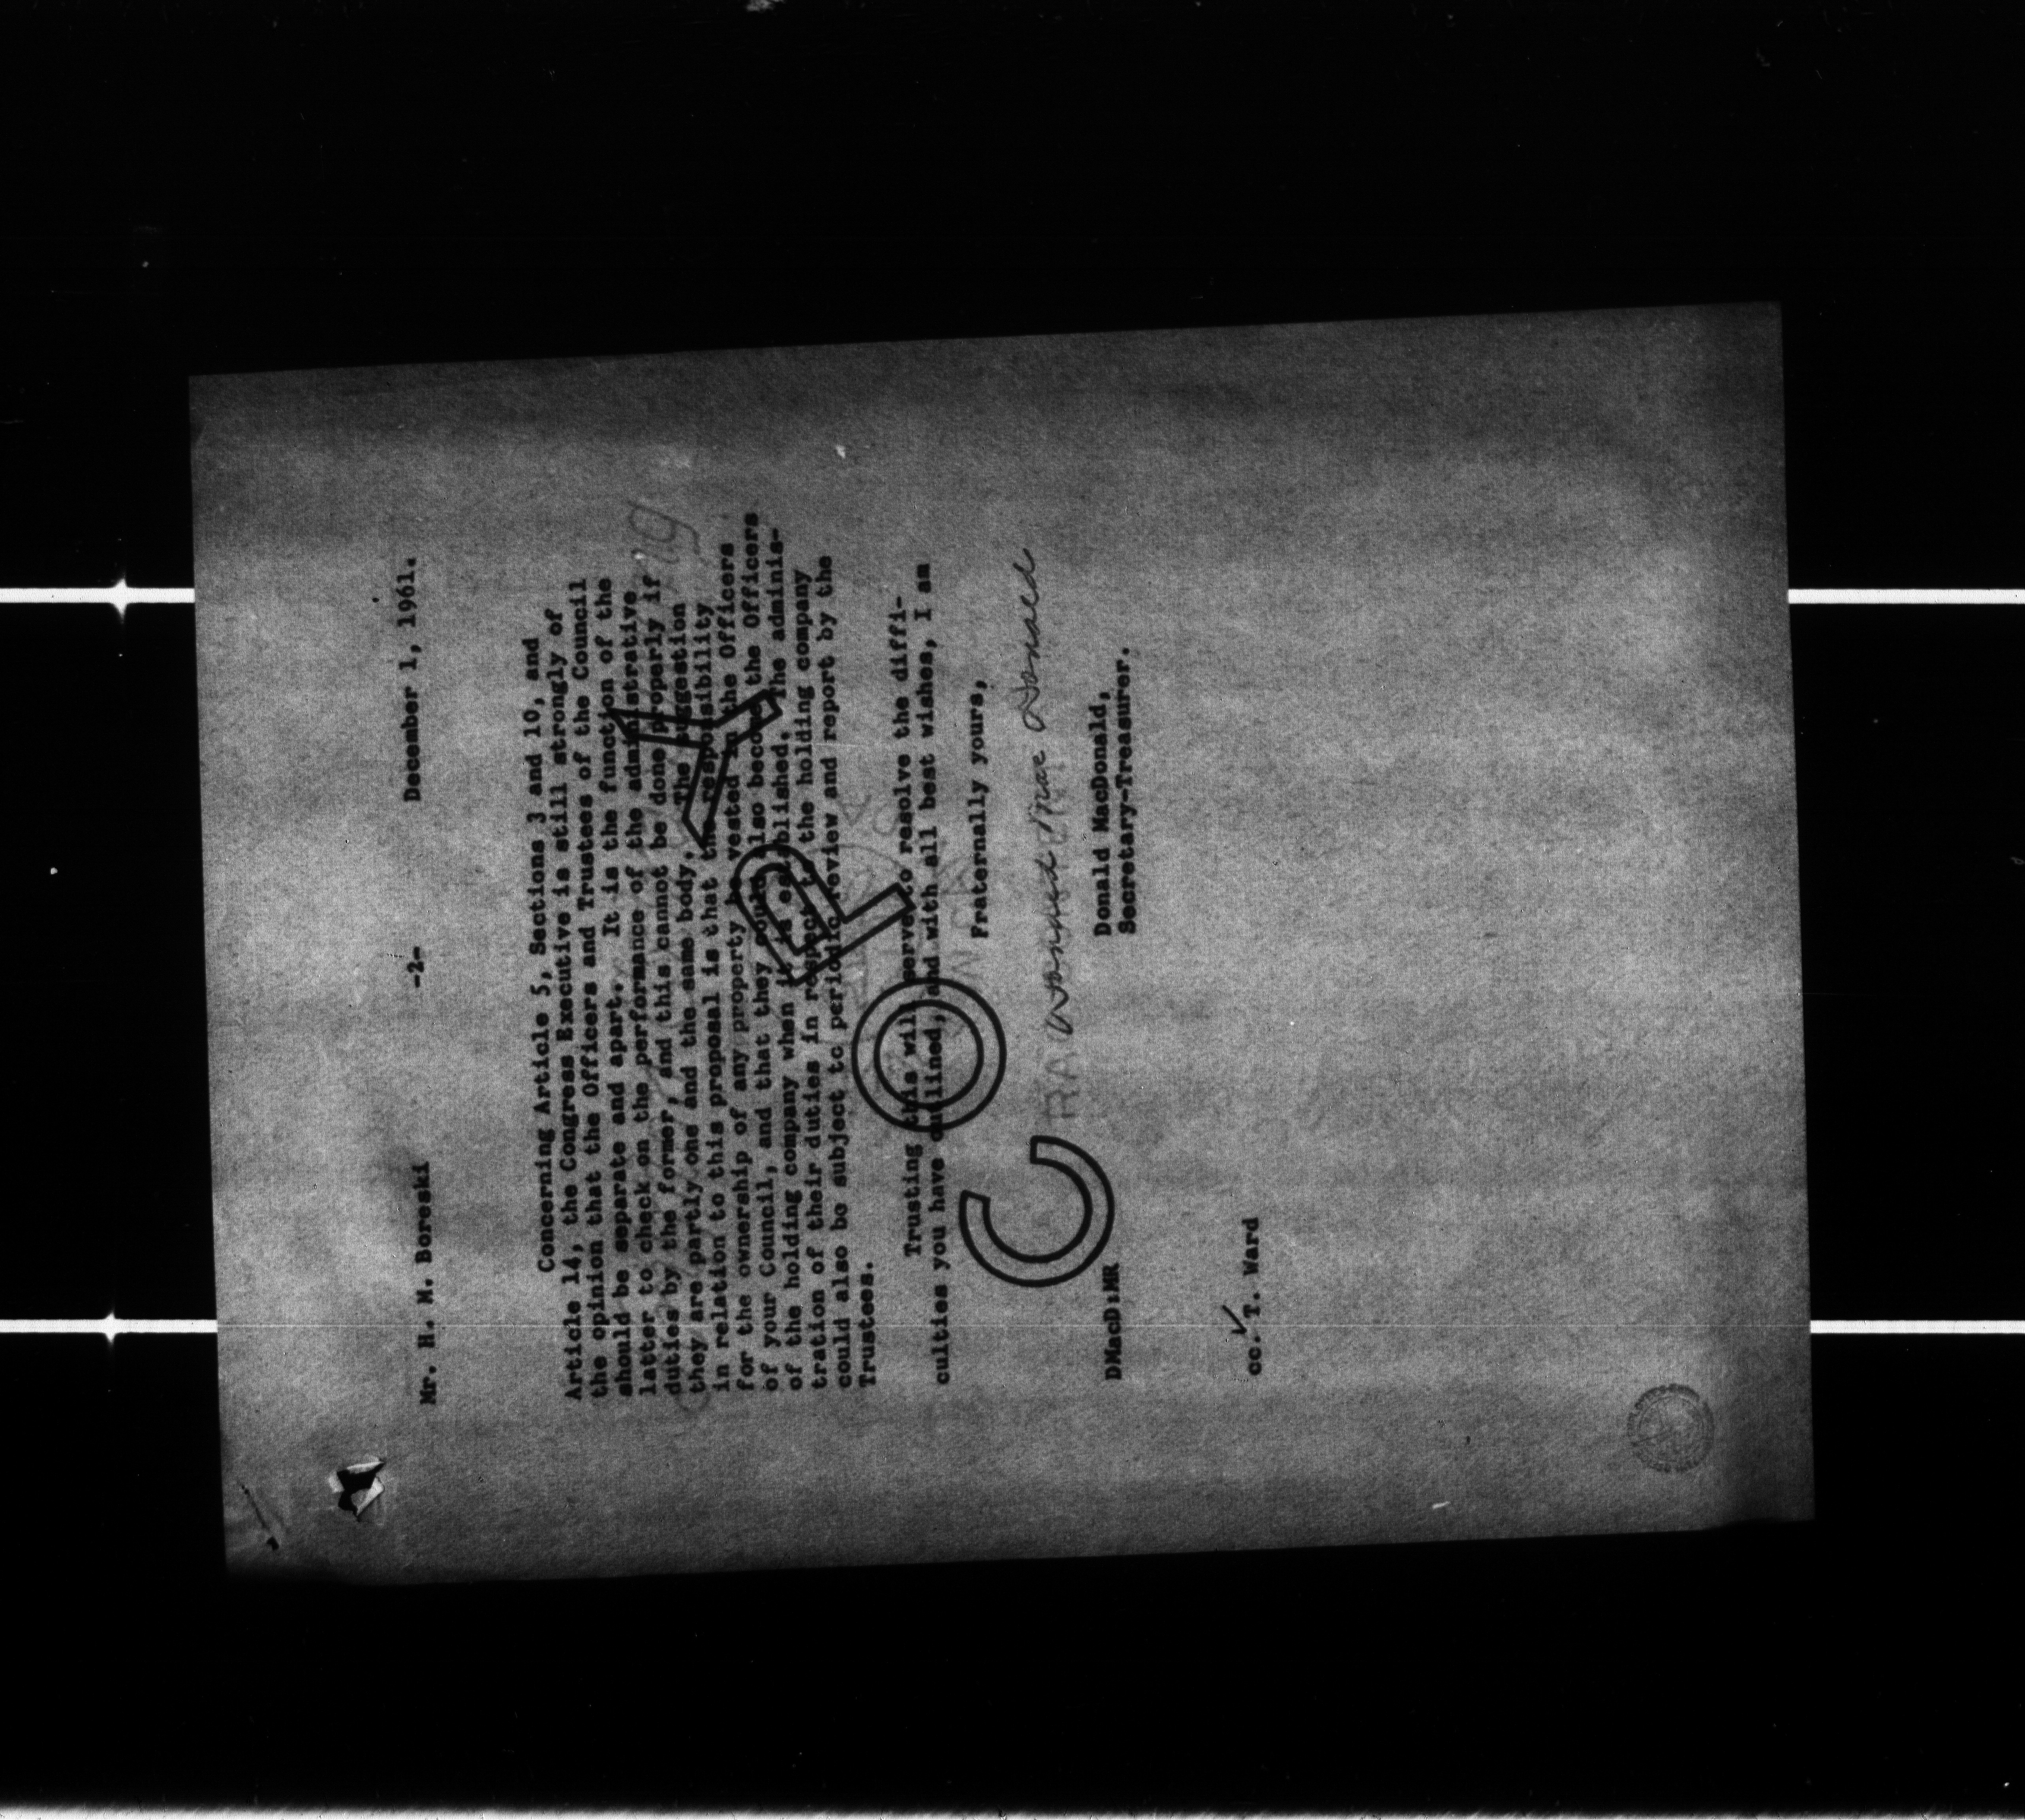 Mr. H. M. Boreski -2- December 1, 1961.
Concerning Article 5, Sections 3 and 10, and
Article 14, the Congress Executive is still strongly of
the opinion that the Officers and Trustees of the Council
should be separate and apart. It is the function of the
latter to check on the performance of the administrative
duties by the former, and this cannot be done properly if
they are partly one and the same body. The suggestion
in relation to this proposal is that the responsibility
for the ownership of any property be vested in the Officers
of your Council, and that they could also become the Officers
of the holding company when it is established. The adminis-
tration of their duties in respect to the holding company
could also be subject to periodic review and report by the
Trustees.
Trusting this will serve to resolve the diffi-
culties you have outlined, and with all best wishes, I am
Fraternally yours,
Donald MacDonald
Donald MacDonald,
Secretary-Treasurer.
DMacD:MR
cc. T. Ward
COPY